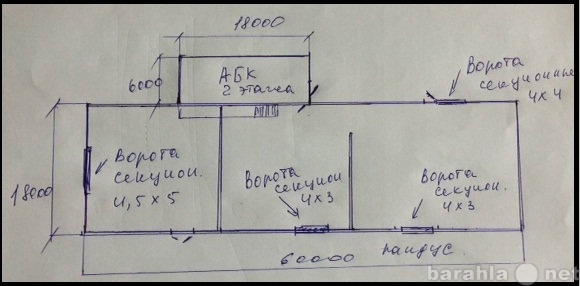 18000
6000
АБК
2 этажа
Ворота
секционные
4х4
18000
Ворота
секцион.
4,5х5
Ворота
секцион
4х3
Ворота
секцион.
4х3
60000
пандус.
barahla.net